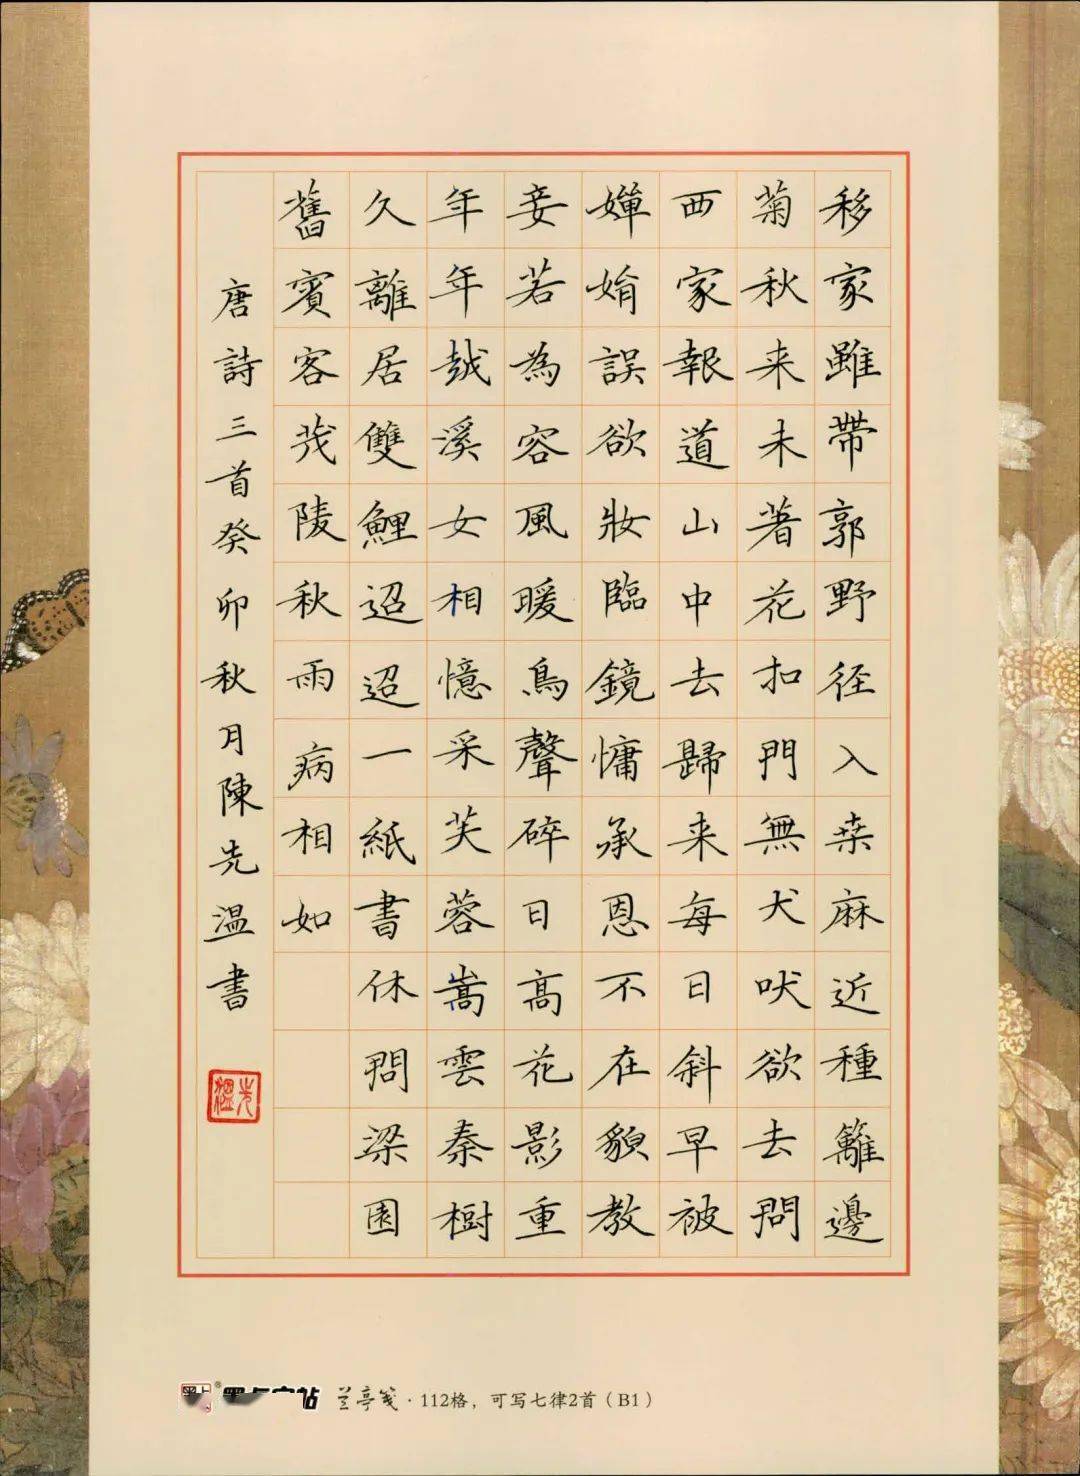 移家雖帶郭野径入桒麻近種籬邊
菊秋来未著花扣門無犬吠欲去問
西家報道山中去歸来每日斜早被
嬋娟誤欲妝臨鏡慵承恩不在貌教
妾若為容風暖鳥聲碎日高花影重
年年越溪女相憶采芙蓉嵩雲秦樹
久離居雙鯉迢迢一紙書休問梁園
舊賓客茂陵秋雨病相如
唐詩三首癸卯秋月陳先温書
先溫
兰亭笺·112格，可写七律2首（B1）